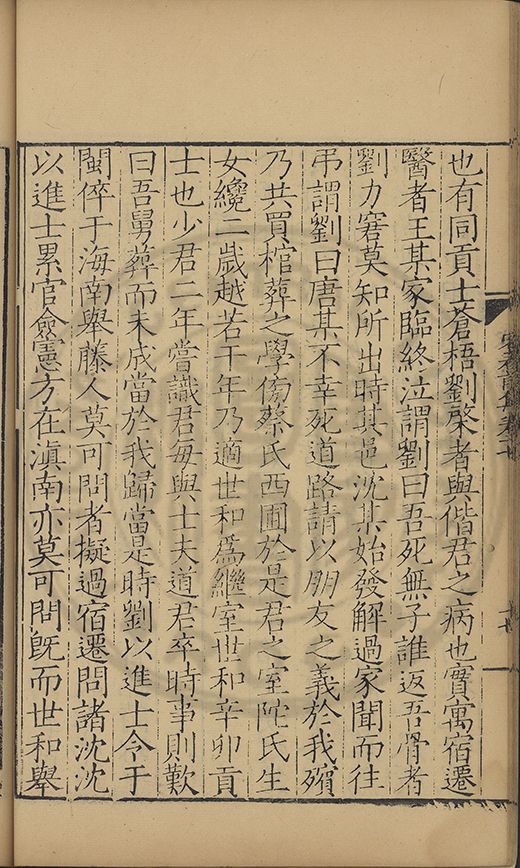 也有同貢士蒼梧劉棨者與偕君之病也實寓宿遷
醫者王某家臨終泣謂劉曰吾死無子誰返吾骨者
劉力窘莫知所出時其邑沈某始發解過家聞而往
弔謂劉曰唐某不幸死道路請以朋友之義於我殯
乃共買棺葬之學傍蔡氏西圃於是君之室陀氏生
女纔二歲越若干年乃適世和爲繼室世和辛卯貢
士也少君二年嘗識君每與士夫道君卒時事則歎
曰吾舅葬而未成當於我歸當是時劉以進士令于
閩倅于海南舉藤人莫可問者擬過宿遷問諸沈沈
以進士累官僉憲方在滇南亦莫可問旣而世和舉